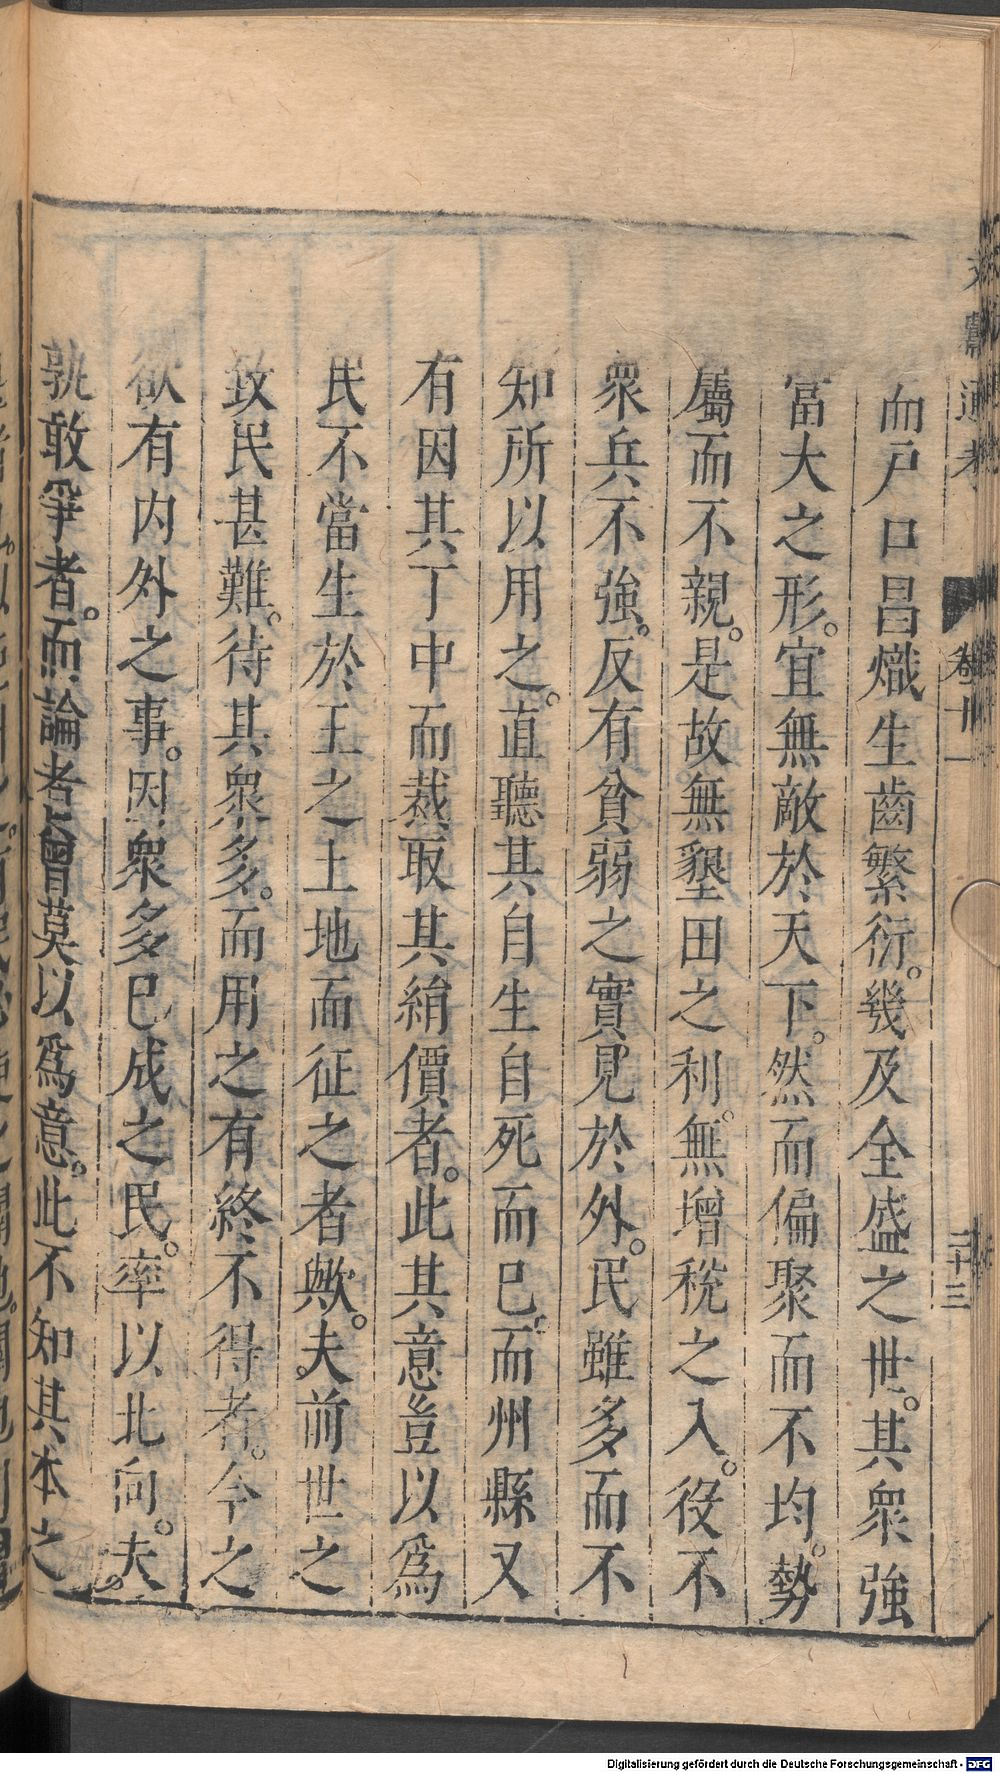 文獻通考 卷十一 二十三
而戸口昌熾生齒繁衍。幾及全盛之世。其衆強
富大之形。宜無敵於天下。然而偏聚而不均。勢
屬而不親。是故無墾田之利。無增稅之入。役不
衆兵不強。反有貧弱之實見於外。民雖多而不
知所以用之。直聽其自生自死而已。而州縣又
有因其丁中而裁取其絹價者。此其意豈以爲
民不當生於王之土地而征之者歟。夫前世之
致民甚難。待其衆多。而用之有終不得者。今之
欲有内外之事。因衆多已成之民。率以北向。夫
孰敢爭者。而論者曾莫以爲意。此不知其本之
Digitalisierung gefördert durch die Deutsche Forschungsgemeinschaft - DFG